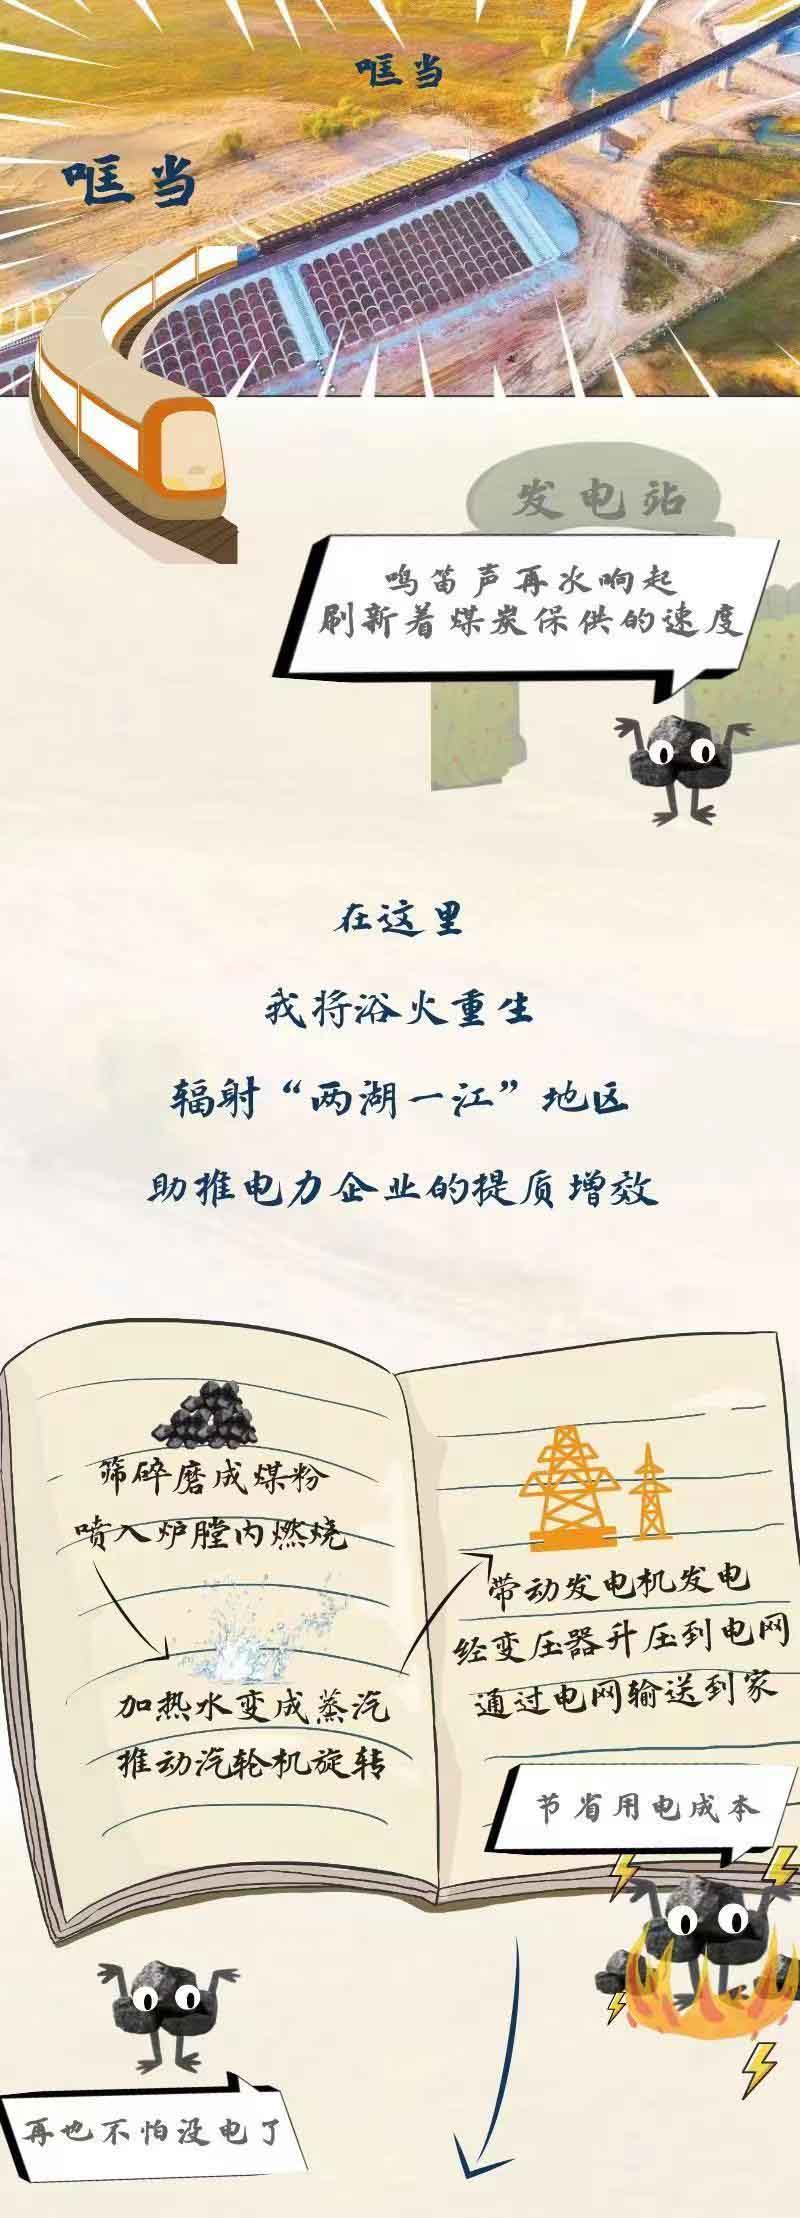 哐当
哐当
发电站
鸣笛声再次响起
刷新着煤炭保供的速度
在这里
我将浴火重生
辐射“两湖一江”地区
助推电力企业的提质增效
筛碎磨成煤粉
喷入炉膛内燃烧
加热水变成蒸汽
推动汽轮机旋转
带动发电机发电
经变压器升压到电网
通过电网输送到家
节省用电成本
再也不怕没电了